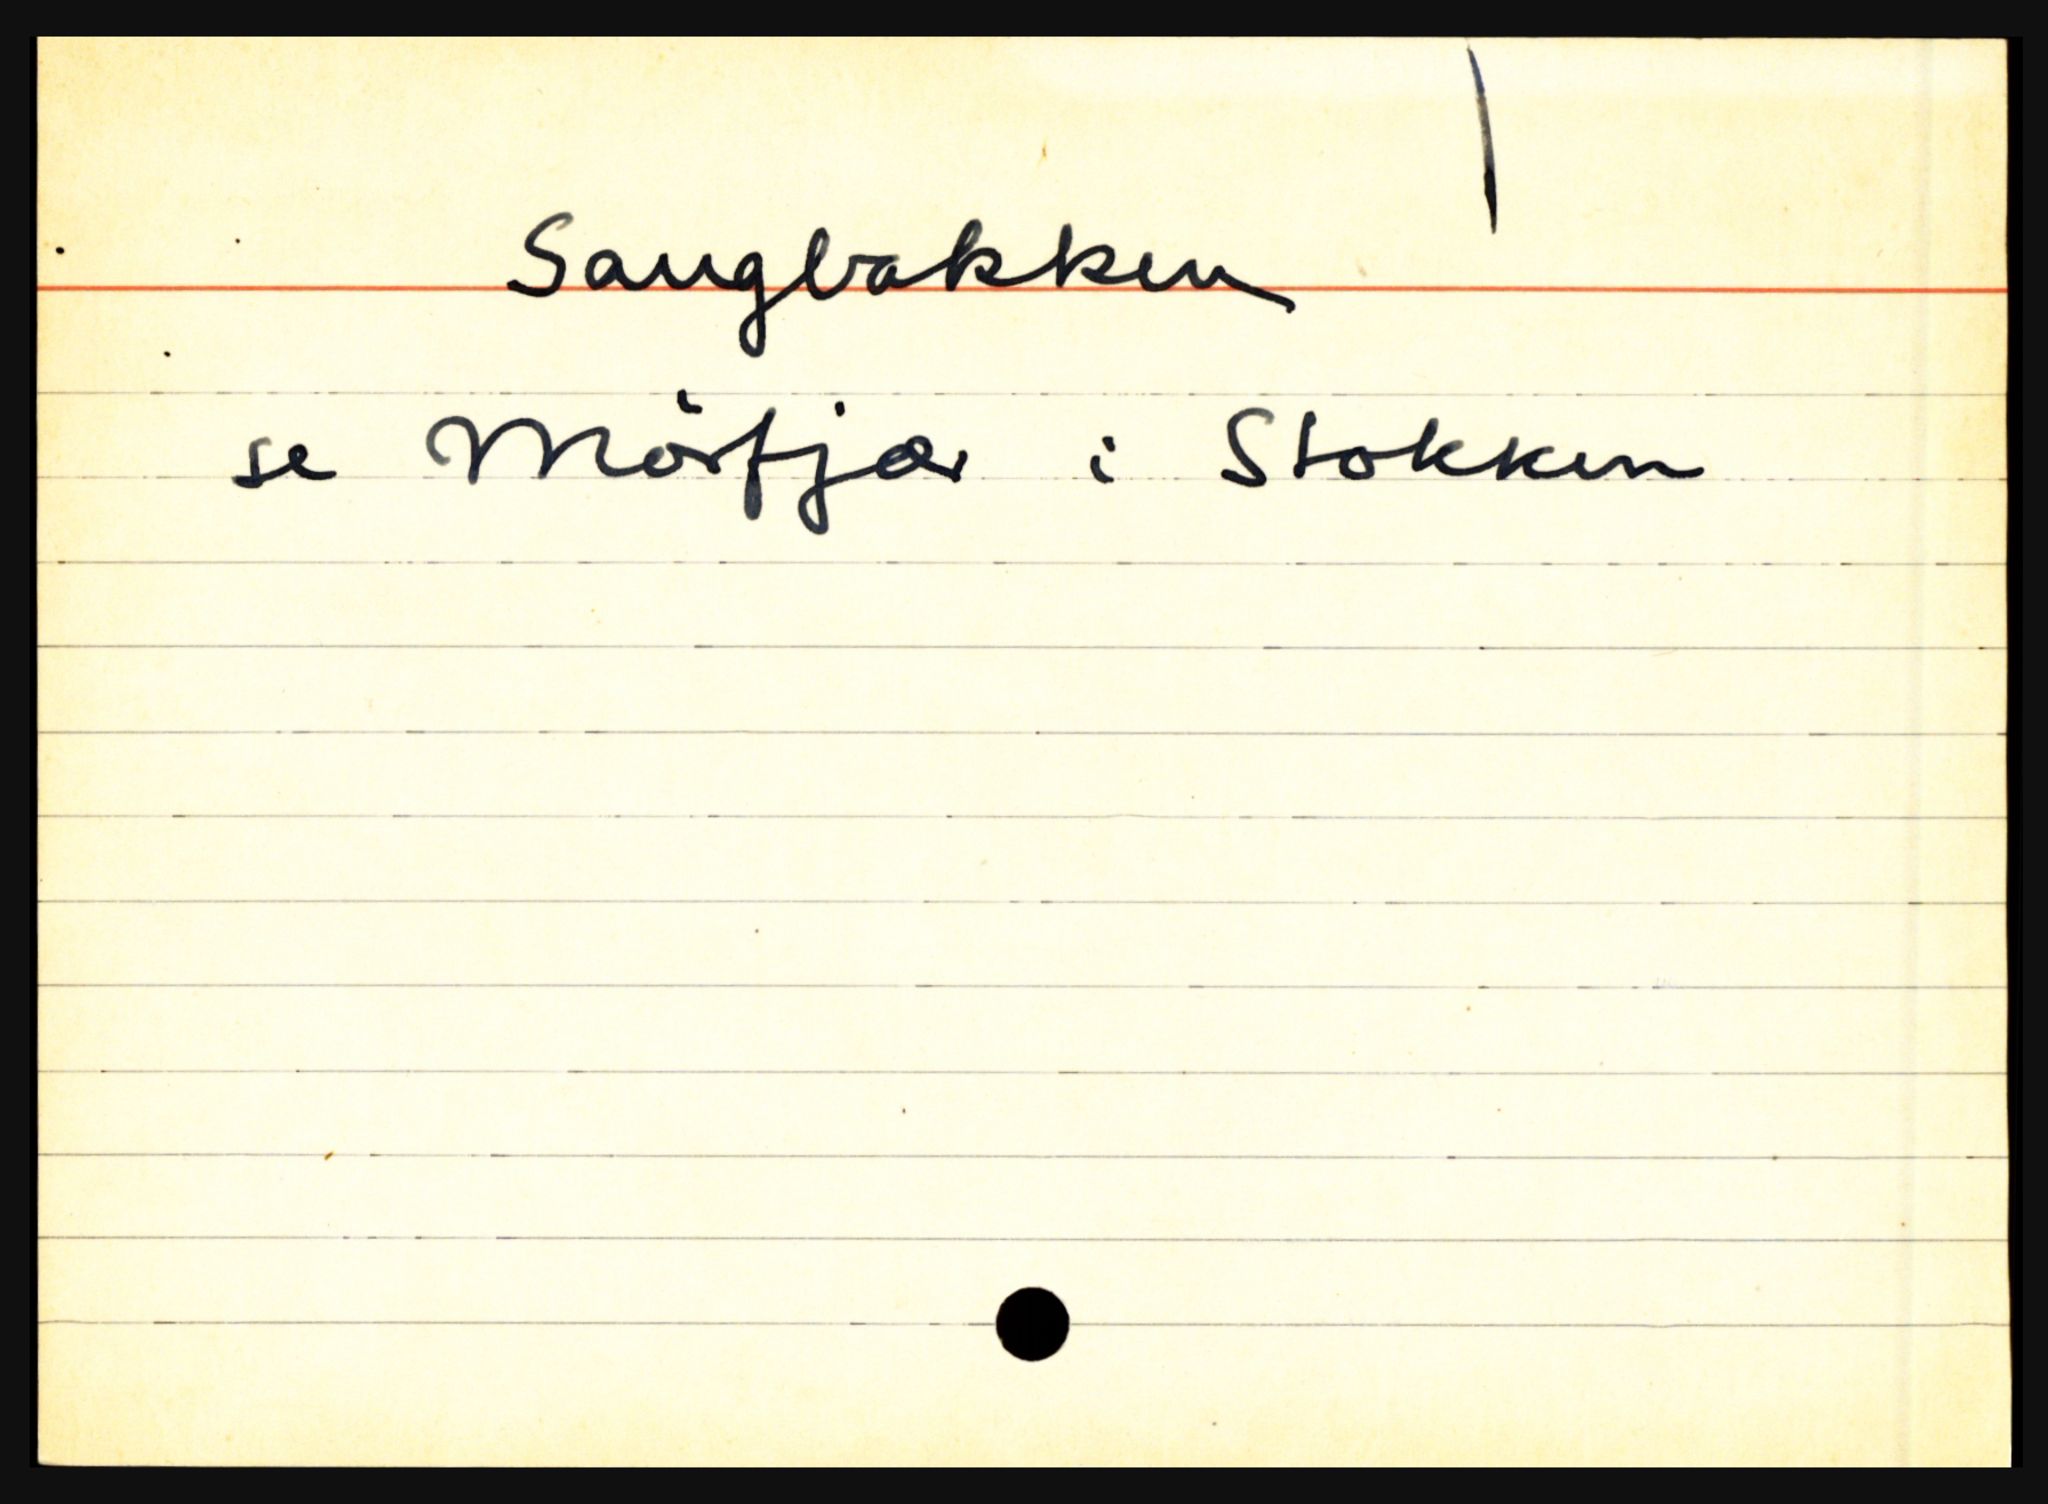 Saugbakken
se Mörfjær i Stokken